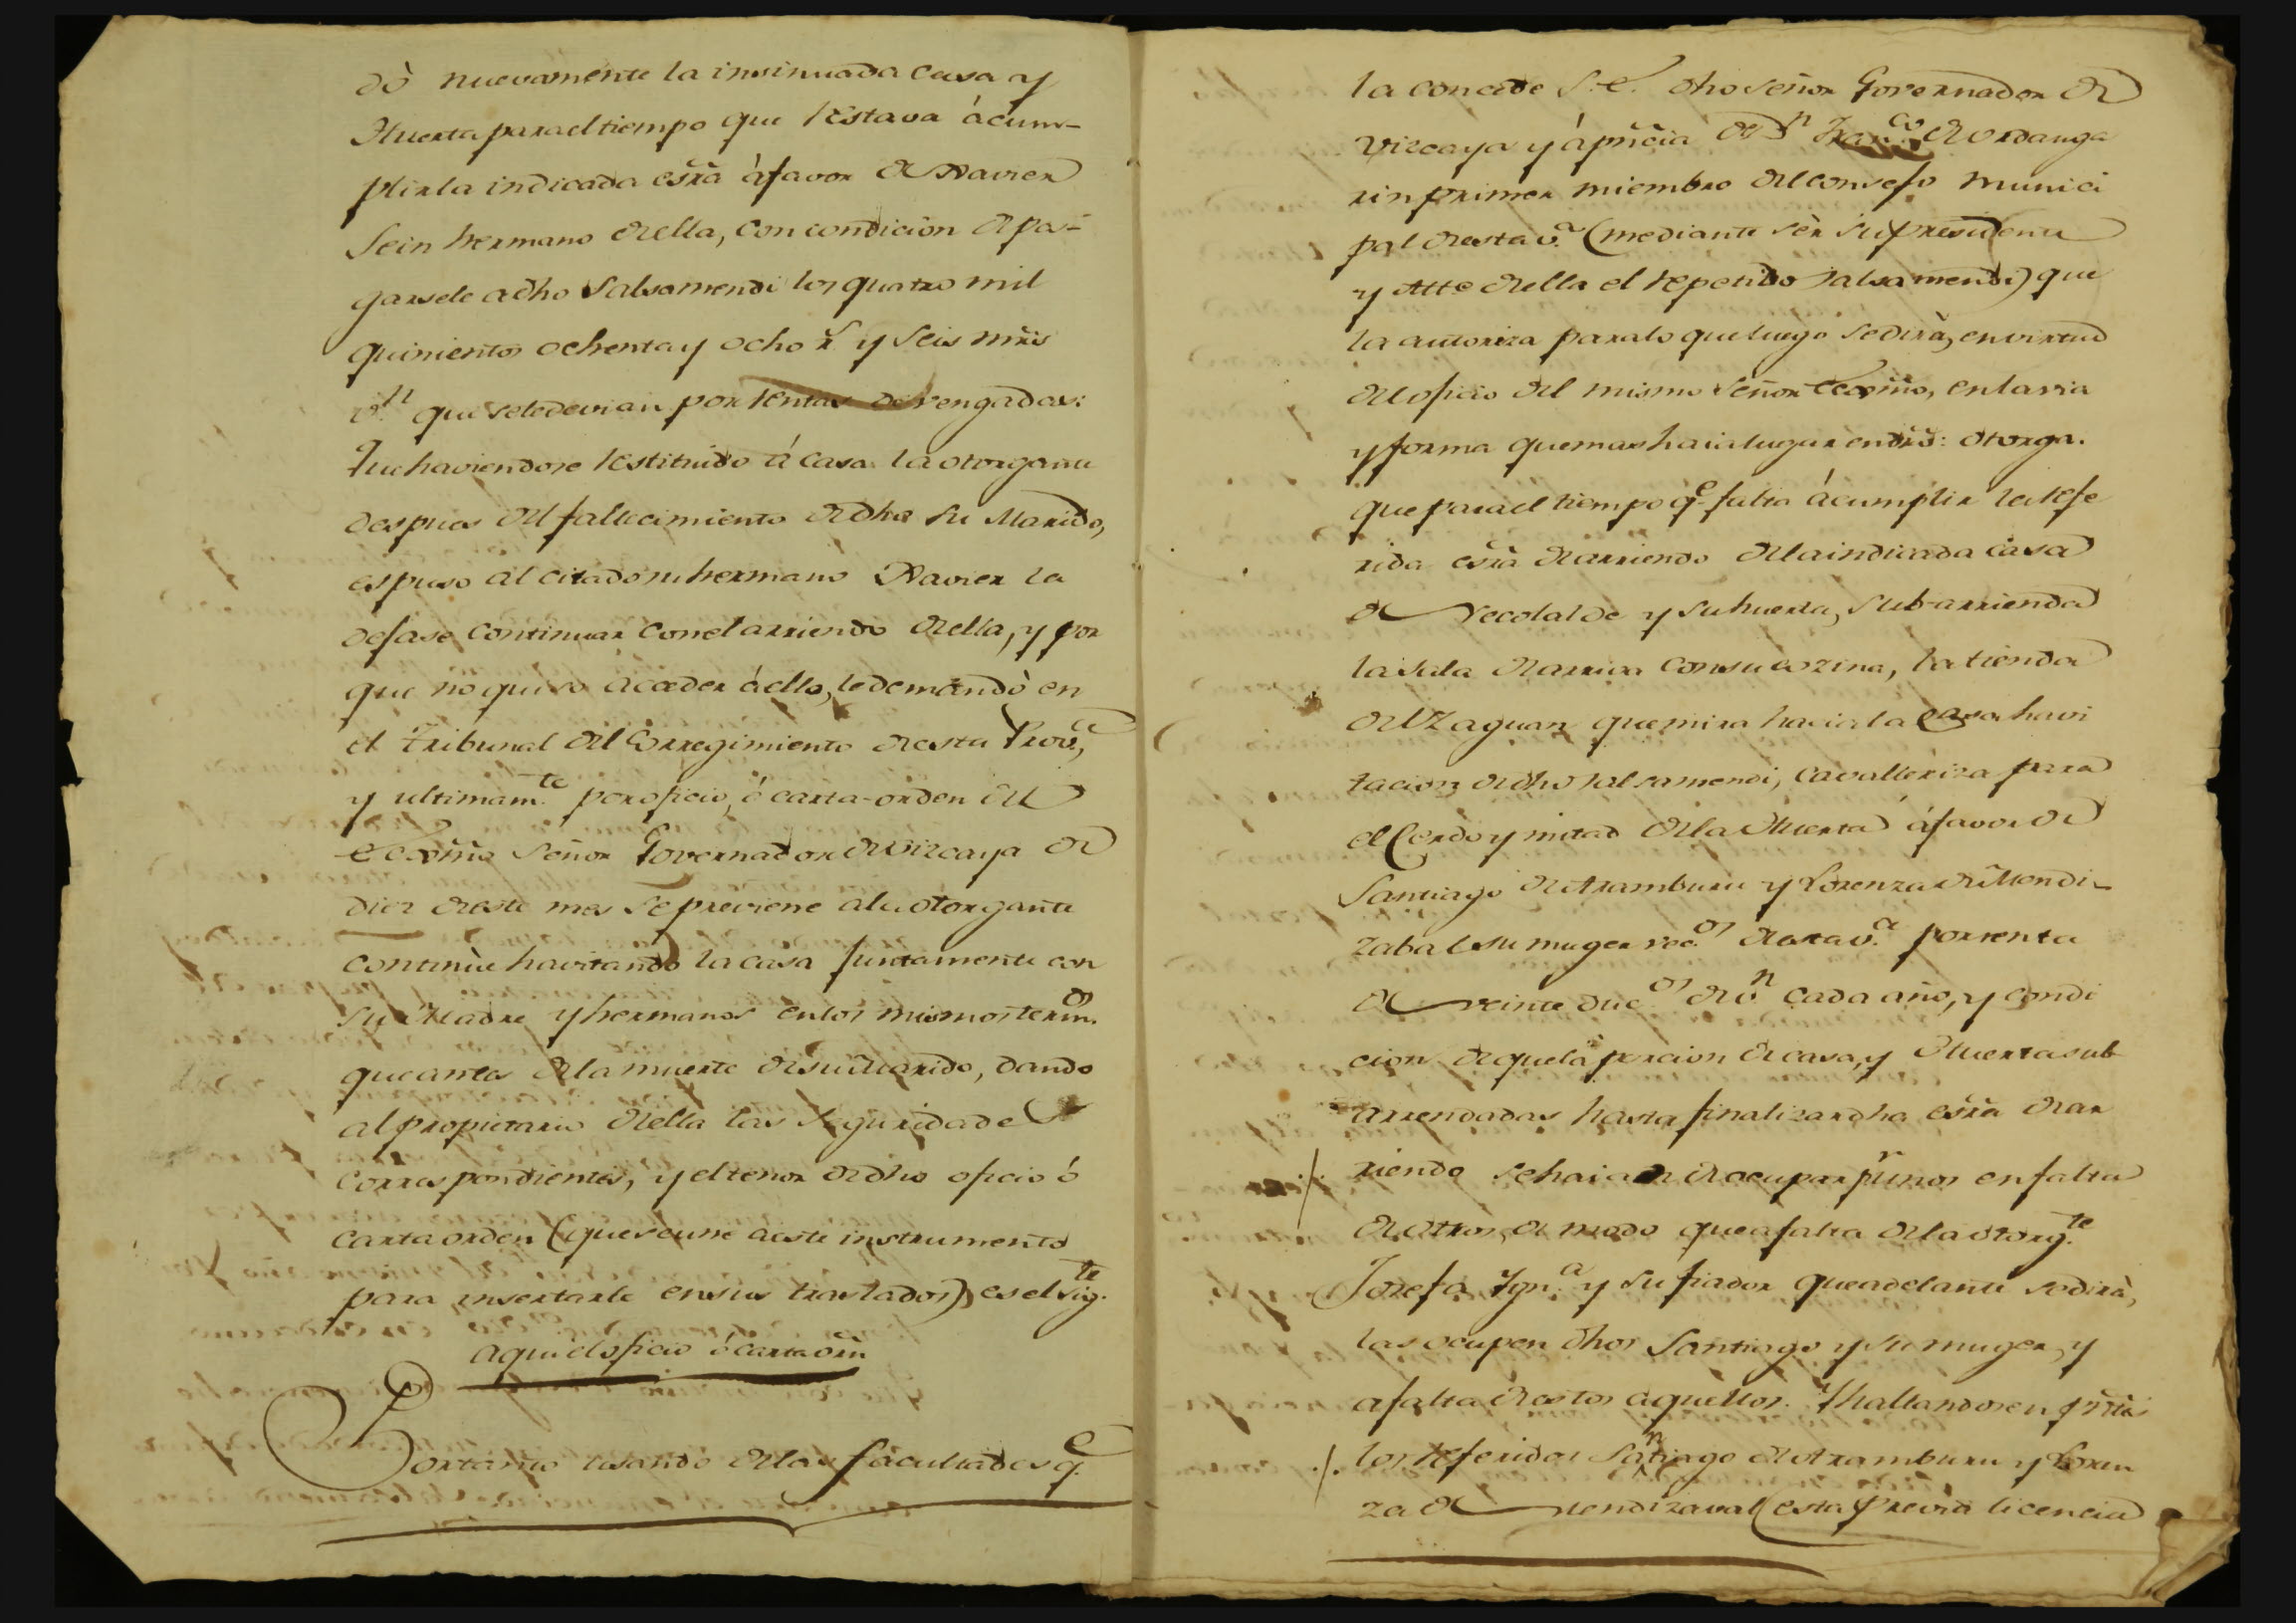 dò nuevamente la insinuada casa y
Huerta para el tiempo que restava ácum-
plir la indicada esrã áfavor de Xavier
Sein hermano de ella, con condicion de pa-
garsele adho Salsamendi los quatro mil
quinientos ochenta y ocho r.s y seis mrs̃
v.n que sele devian por rentas devengadas:
Que haviendose restituido á casa la otorgante
despues del fallecimiento de dho su Marido,
espuso al citado su hermano Xavier la
dejase continuar con el arriendo de ella, y por
que no quiso acceder áello, le demandò en
el Tribunal del Corregimiento de esta Prov.a,
y ultimam.te por oficio, ó carta-orden del
Excm̃o Señor Governador de Vizcaya de
diez de este mes se previene ala otorgante
continùe havitando la casa juntamente con
su Madre y hermanos en los mismos termin.os
que antes de la muerte de su Marido, dando
al propietario de ella las seguridades
correspondientes, y el tenor de dho oficio ó
carta orden (que se une a este instrumento
para insertarle en sus traslados) es el sig.te
Aqui el oficio ó carta orn̄
Por tanto usando de las facultades q.e
la concede S.E. dho señor Governador de
Vizcaya y ápñcia de D.n Fran.co de Urdanga
rin primer miembro del consejo munici
pal de esta v.a (mediante sèr su presidente
y Att.e de ella el repetido Salsamendi) que
la autoriza para lo que luego se dirà, en virtud
del oficio del mismo Señor Excm̃o, en la via
y forma que mas haia lugar en drõ: otorga.
que para el tiempo q.e falta ácumplir la refe
rida esrã de arriendo de la indicada casa
de Recolalde y su huerta, sub-arrienda
la sala de arriva con su cozina, la tienda
del Zaguan que mira hacia la casa havi
tacion de dho Salsamendi, cavalleriza para
el Cerdo y mitad de la Huerta áfavor de
Santiago de Aramburu y Lorenza de Mendi-
zabal su muger vec.os de esta v.a por renta
de veinte duc.os de v.n cada año, y condi
cion de que la porcion de casa, y Huerta sub-
arrendadas hasta finalizar dha esrã de ar
riendo se haia de ocupar p.r unos en falta
de otros, de modo que a falta de la otorg.te
Josefa Ygn.a y su fiador que adelante se dirà,
las ocupen dhos Santiago y su muger, y
a falta de estos aquellos. Y hallandose en pñcia
los referidos Santiago de Aramburu y Loren
za de Mendizaval (esta previa licencia